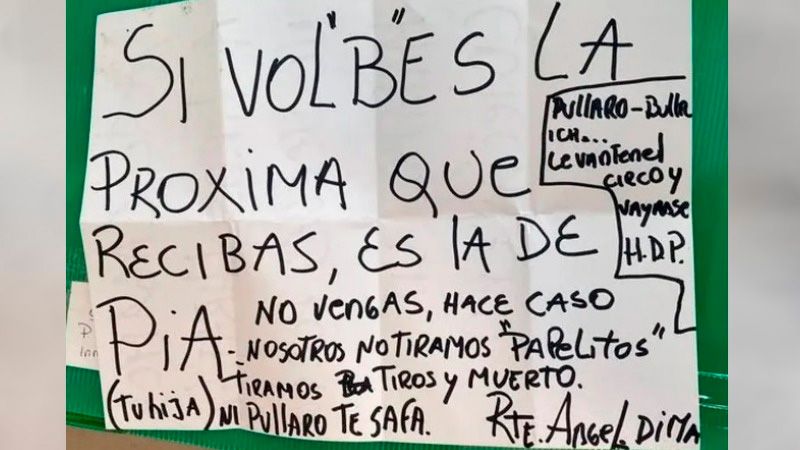 SI VOL"B"ES LA
PROXIMA QUE
RECIBAS, ES LA DE
PIA - NO VENGAS, HACE CASO
NOSOTROS NO TIRAMOS "PAPELITOS"
TIRAMOS TIROS Y MUERTO.
(TU hija) NI PULLARO TE SAFA.
RTE. ANGEL. DIMA
PULLARO - Bull
ICH...
LEVANTEN el
CIRCO Y
VAYANSE
H.D.P.